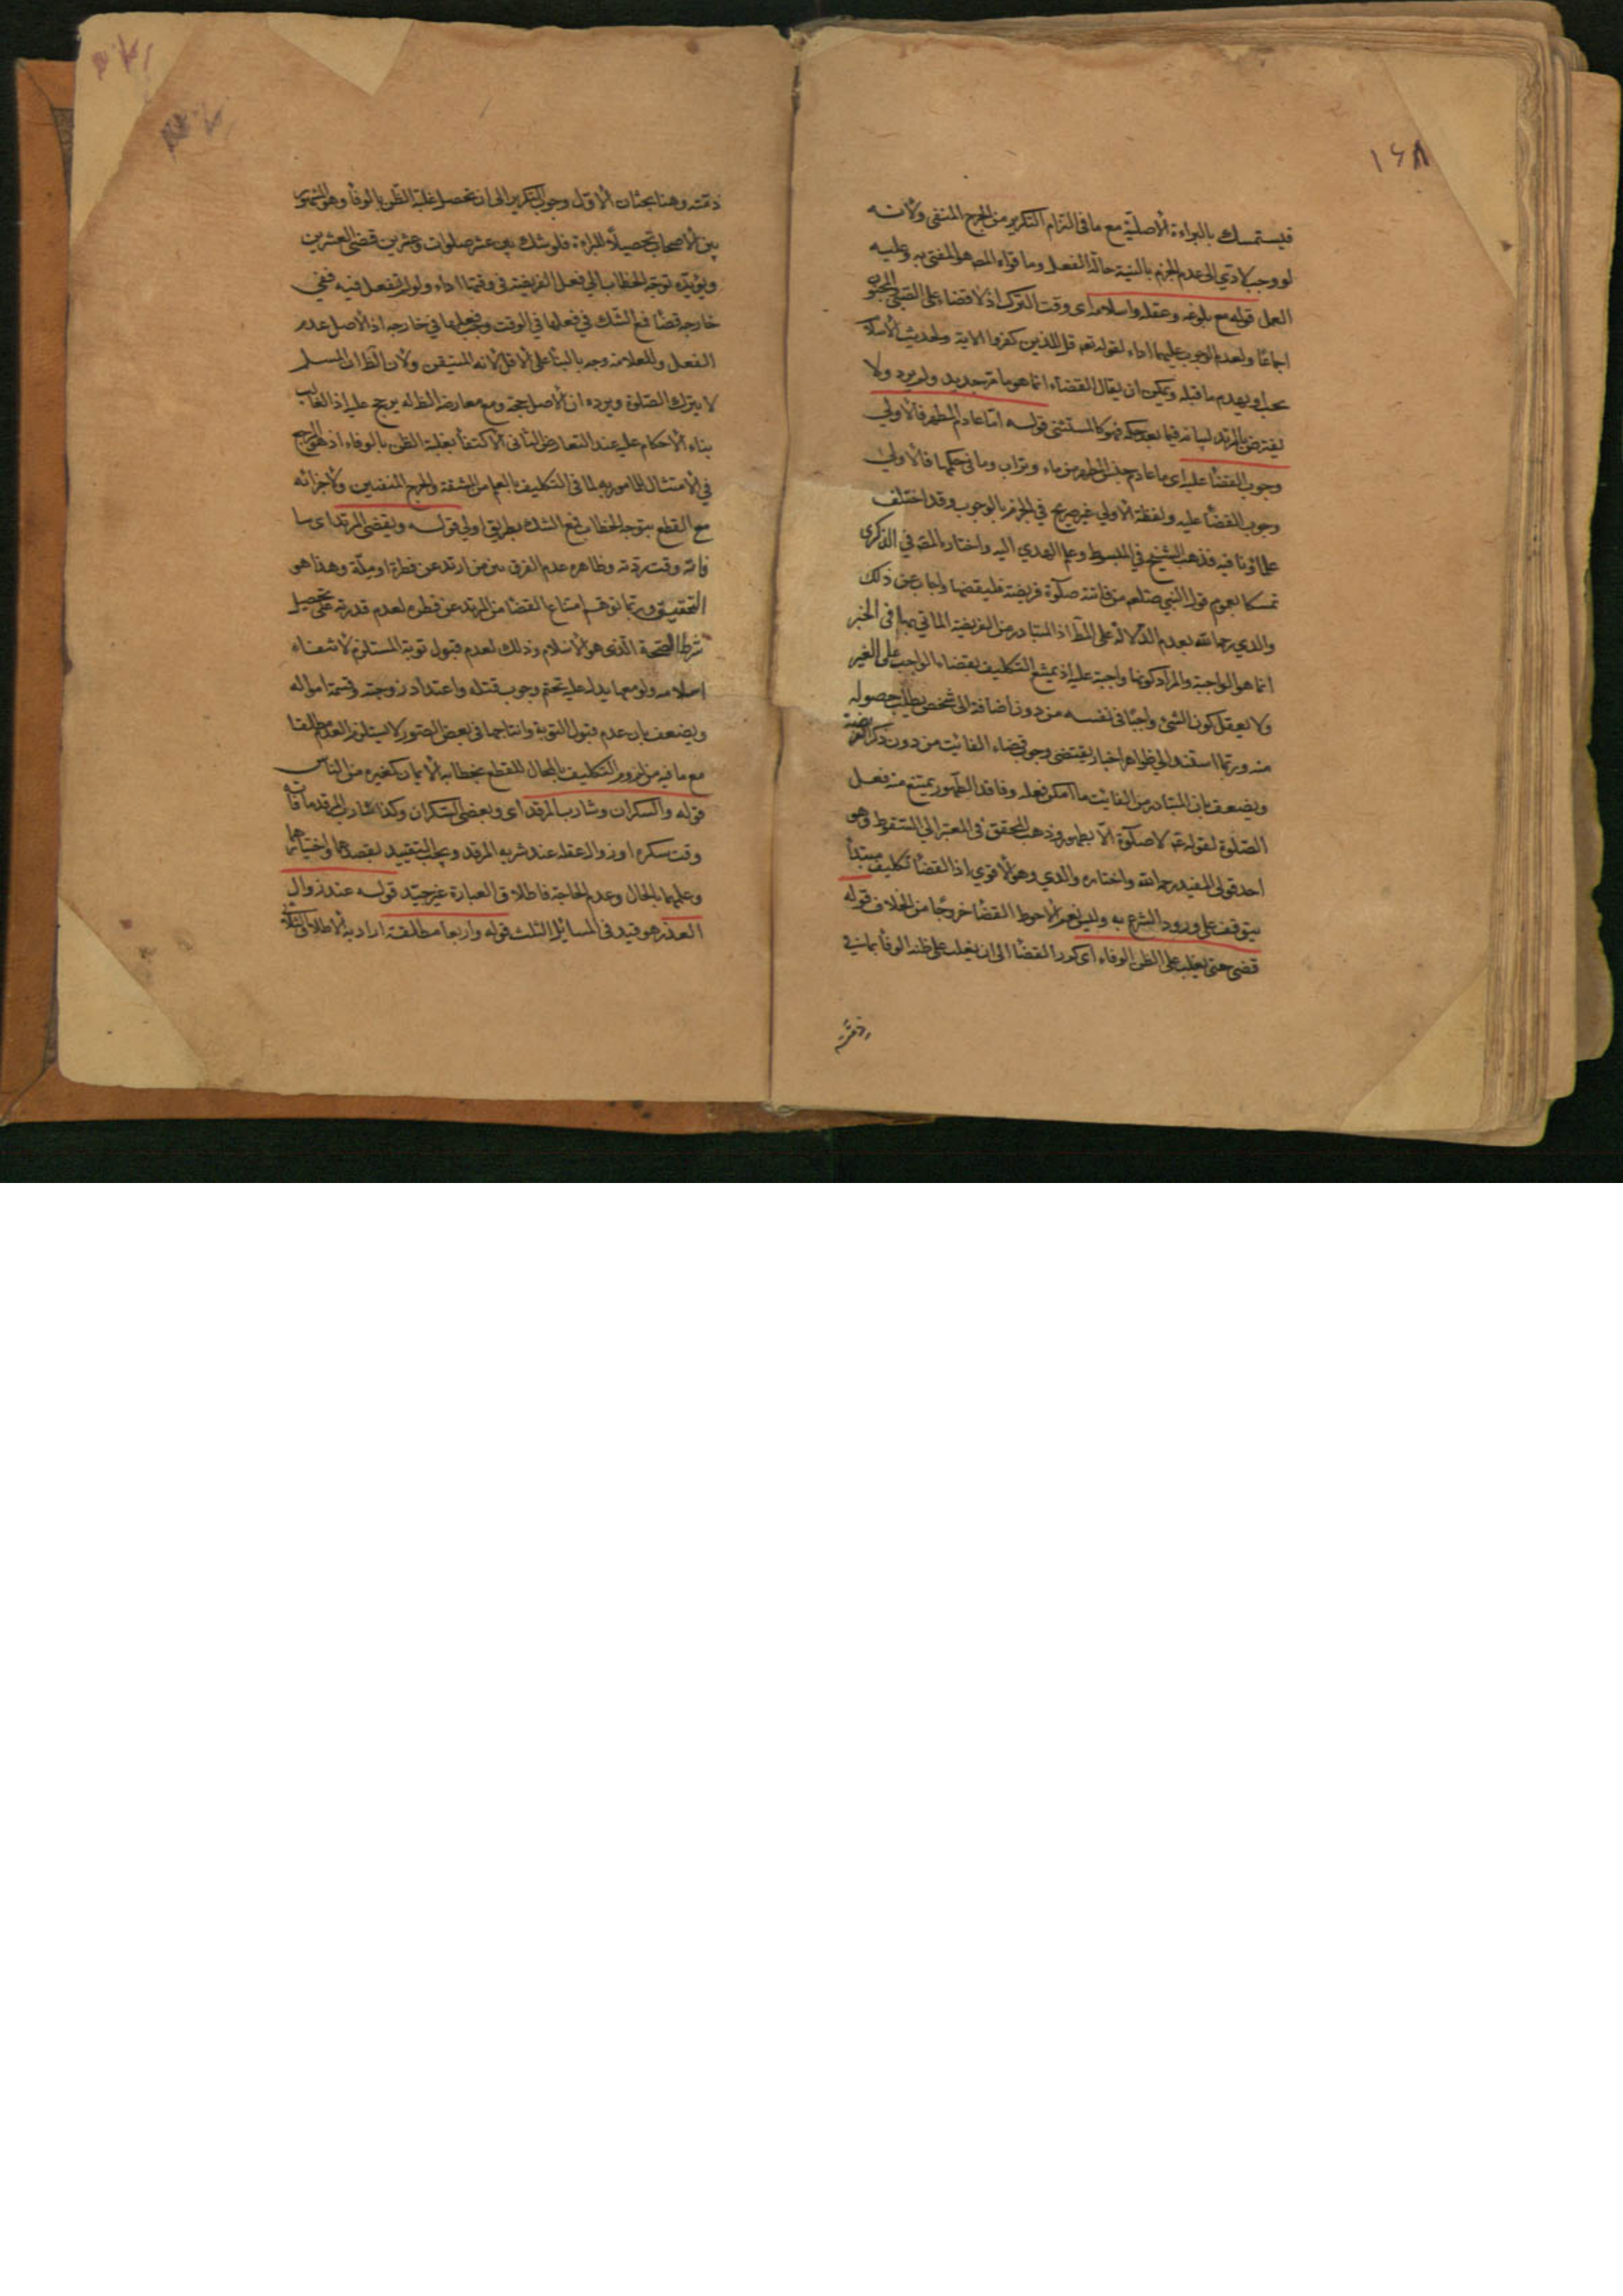 ١٦٨
فيستمسك بالبراءة الأصلية مع ما في التزام التكرير من الحرج المنفي ولأنه
لو وجب لأدي الى عدم الجزم بالنية حالة الفعل وما قواه المص هو المفتى به وعليه
العمل قوله مع بلوغه وعقله واسلامه اى وقت الترك اذ لا قضاء على الصبي والمجنون
اجماعا ولعدم الوجوب عليهما اداء لقوله تعه قل للذين كفروا الاية ولحديث الاسلام
يجب او يهدم ما قبله ويمكن ان يقال القضاء انما هو بامر جديد ولم يرد ولا
يفترض بالمرتد لبيانه فيما بعد حكمه فهو كالمستثنى قوله اما عادم المطهر فالأولي
وجوب القضأ عليه اى ما عادم جنس المطهر من ماء وتراب وما في حكمها فالأولى
وجوب القضأ عليه ولفظة الأولي غير صريح في الجزم بالوجوب وقد اختلف
علماؤنا فيه فذهب الشيخ في المبسوط وعلم الهدي اليه واختاره المصه في الذكرى
تمسكا بعموم قول النبي صلعم من فاتته صلوة فريضة فليقضها واجاب عن ذلك
والدي رحمه الله بعدم الدلالة على المط اذ المتبادر من الفريضة المأتي بها في الخبر
انما هو الواجبة والمراد كونها واجبة عليه اذ يمتنع التكليف بقضاء الواجب على الغير
ولا يعقل كون الشئ واجبًا في نفسه من دون اضافة الى شخص يطلب حصوله
منه وربما استند الى ظواهر اخبار يقتضي وجوب قضاء الفائت من دون ذكر الفريضة
ويضعف بان المتبادر من الفائت ما امكن فعله وفاقد الطهور يمتنع منه فعل
الصلوة لقوله عه لا صلوة الا بطهور وذهب المحقق في المعتبر الى السقوط وهو
احد قولي المفيد رحمه الله واختاره والدي وهو الأقوي اذ القضأ تكليف مبتدأ
يتوقف على ورود الشرع به وليس نعم الأحوط القضأ خروجًا من الخلاف قوله
قضى حتى يغلب على الظن الوفاء اى كرر القضأ الى ان يغلب على ظنه الوفأ بما في
ذمته
ذمته وهنا بحثان الأول وجوب التكرير الى ان تحصل غلبة الظن بالوفأ وهو المشهور
بين الأصحاب تحصيلًا للبراءة فلو شك بين عشر صلوات وعشرين قضى العشرين
ويؤيده توجه الخطاب الي فعل الفريضة في وقتها اداء ولو لم تفعل فيه ففي
خارجه قضأ فمع الشك في فعلها في الوقت وجب فعلها في خارجه اذ الأصل عدم
الفعل وللعلامة وجه بالبنأ على الأقل لأنه المتيقن ولأن الظ ان المسلم
لا يترك الصلوة ويرده ان الأصل حجة ومع معارضة الظ له يرجح عليه اذ الغالب
بناء الأحكام عليه عند التعارض الثاني الاكتفأ بغلبة الظن بالوفاء اذ هو المرجع
في الأمتثال للمأمور به لما في التكليف بالعلم من المشقة والحرج المنفيين ولأجزائه
مع القطع بتوجه الخطاب فمع الشك بطريق اولي قوله ويقضى المرتد اى ما
فاته وقت ردته وظاهره عدم الفرق بين من ارتد عن فطرة او ملة وهذا هو
التحقيق وربما توهم امتناع القضأ من المرتد عن فطرة لعدم قدرته على تحصيل
شرط الصحة الذي هو الأسلام وذلك لعدم قبول توبة المستلزم لأنتفاء
اسلامه ولو معها يدل عليه تحتم وجوب قتله واعتداد زوجته وقسمة امواله
ويضعف بان عدم قبول التوبة وانتاجها في بعض الصور لا يستلزم العدم مطلقا
مع ما فيه من لزوم التكليف بالمحال للقطع بخطابه بالأيمان كغيره من الناس
قوله والسكران وشارب المرقد اى ويقضى السكران وكذا شارب المرقد ما فاته
وقت سكره او زوال عقله عند شربه المرقد ويجب التقييد بقصدهما واختيارهما
وعلمهما بالحال وعدم الحاجة فاطلاق العبارة غير جيد قوله عند زوال
العذر هو قيد في المسائل الثلث قوله واربعا مطلقة اراد به الأطلاق الثلاثي